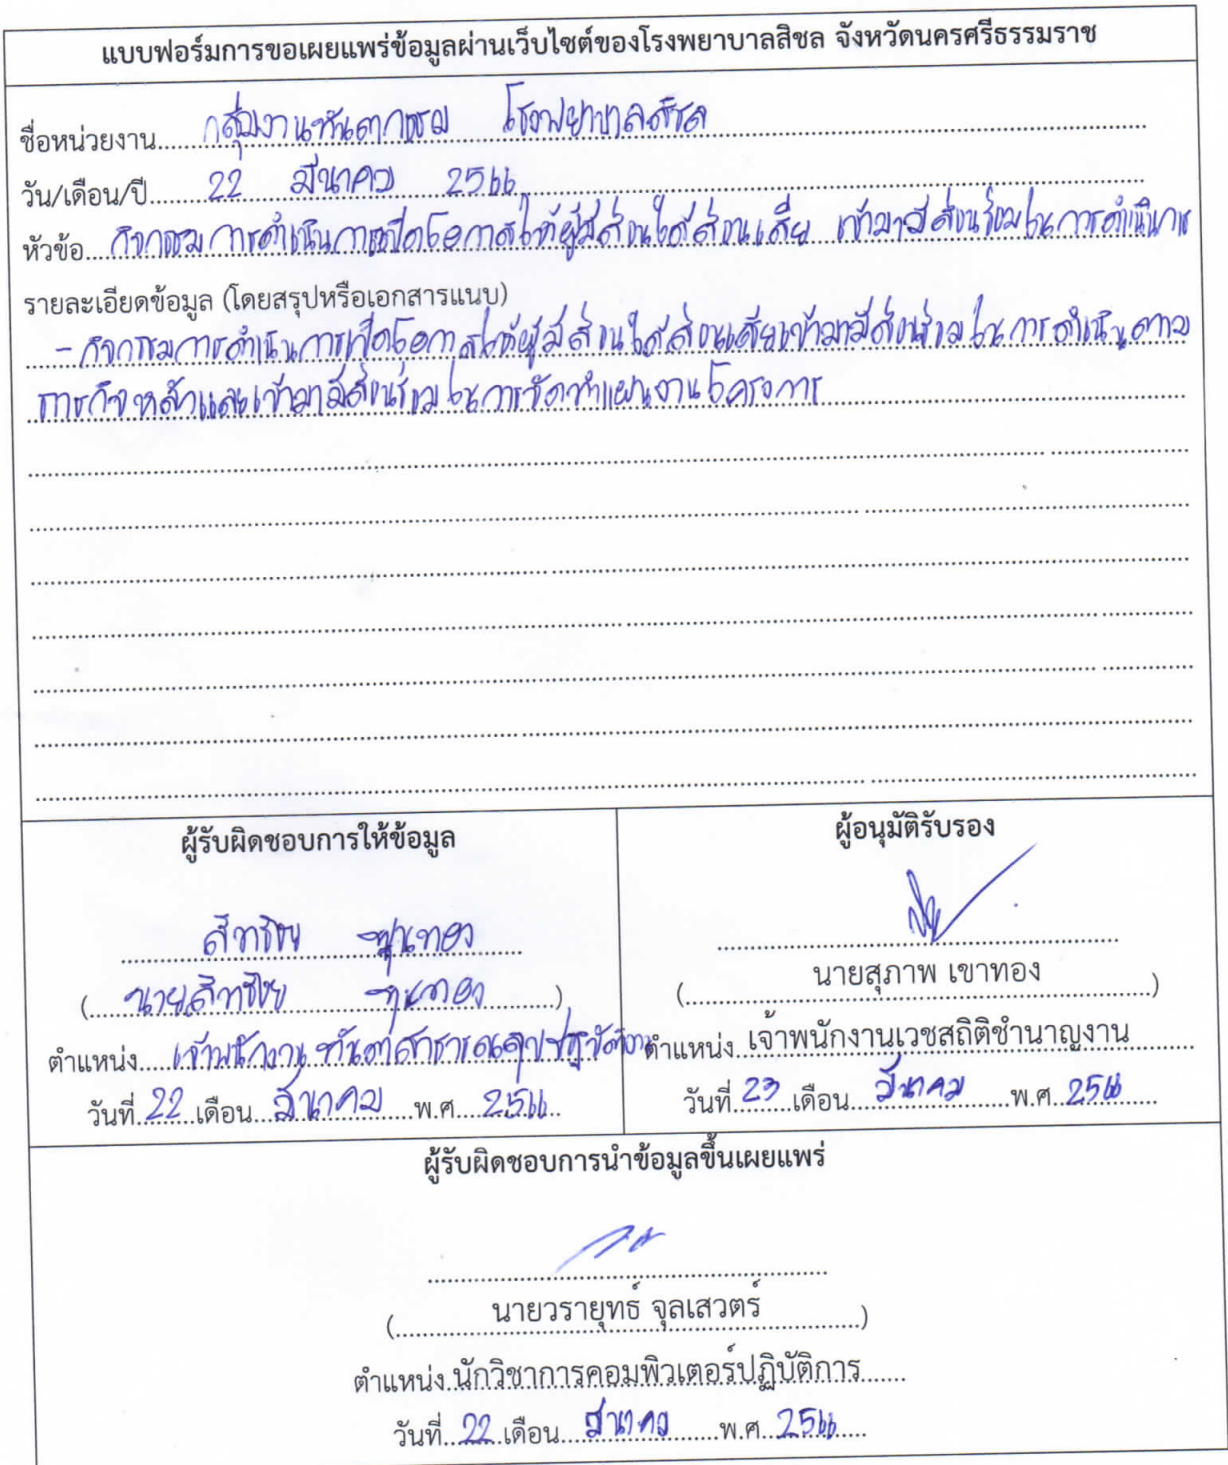 แบบฟอร์มการขอเผยแพร่ข้อมูลผ่านเว็บไซต์ของโรงพยาบาลสิชล จังหวัดนครศรีธรรมราช
ชื่อหน่วยงาน.....กลุ่มงานทันตกรรม โรงพยาบาลสิชล
วัน/เดือน/ปี.....22 มีนาคม 2566
หัวข้อ....กิจกรรมการดำเนินการเปิดโอกาสให้ผู้มีส่วนได้ส่วนเสีย เข้ามามีส่วนร่วมในการดำเนินการ
รายละเอียดข้อมูล (โดยสรุปหรือเอกสารแนบ)
- กิจกรรมการดำเนินการเปิดโอกาสให้ผู้มีส่วนได้ส่วนเสียเข้ามามีส่วนร่วมในการดำเนินตาม
ภารกิจหลักและเข้ามามีส่วนร่วมในการจัดทำแผนงานโครงการ
ผู้รับผิดชอบการให้ข้อมูล
สิทธิชัย
(นายสิทธิชัย )
ตำแหน่ง.....เจ้าพนักงานทันตสาธารณสุขปฏิบัติงาน
วันที่ 22 เดือน มีนาคม พ.ศ. 2566
ผู้อนุมัติรับรอง
(นายสุภาพ เขาทอง)
ตำแหน่ง เจ้าพนักงานเวชสถิติชำนาญงาน
วันที่ 23 เดือน มีนาคม พ.ศ. 2566
ผู้รับผิดชอบการนำข้อมูลขึ้นเผยแพร่
(นายวรายุทธ์ จุลเสวตร์)
ตำแหน่ง.นักวิชาการคอมพิวเตอร์ปฏิบัติการ
วันที่ 22 เดือน มีนาคม พ.ศ. 2566